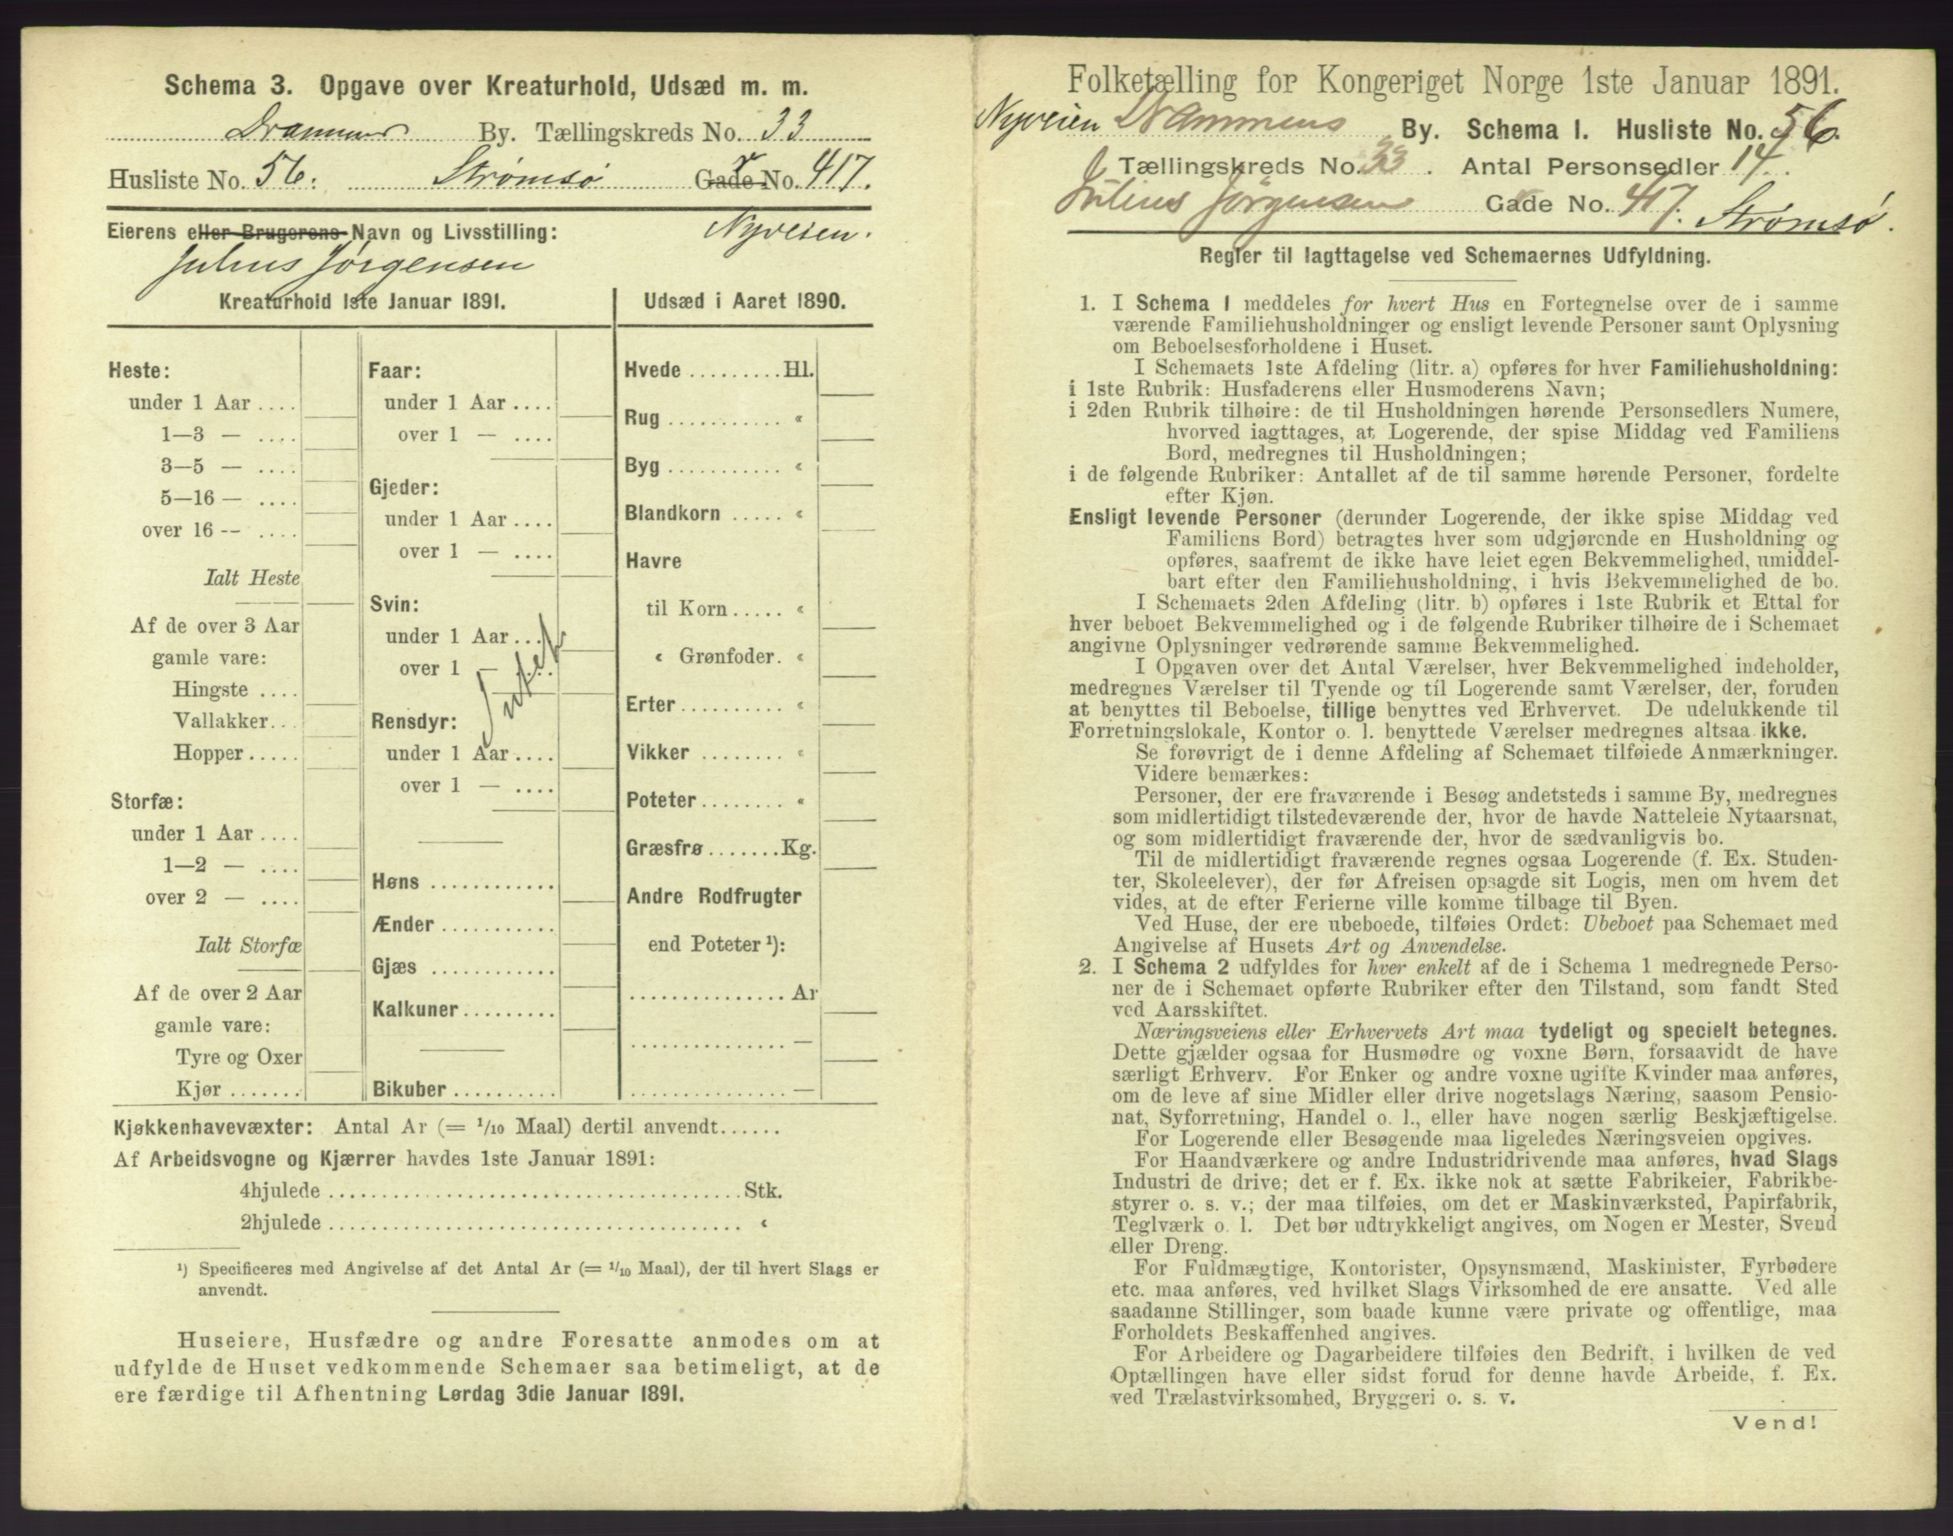 Schema 3. Opgave over Kreaturhold, Udsæd m. m.
Drammens By. Tællingskreds No. 33
Husliste No. 56. Strømsø Gade No. 417.
Eierens eller Brugerens Navn og Livsstilling: Nyveien.
Julius Jørgensen
Kreaturhold 1ste Januar 1891.
Heste:
under 1 Aar ....
1—3 — ....
3—5 — ....
5—16 — ....
over 16 -- ....
Ialt Heste
Af de over 3 Aar
gamle vare:
Hingste ....
Vallakker...
Hopper.....
Storfæ:
under 1 Aar ....
1—2 — ....
over 2 — ....
Ialt Storfæ
Af de over 2 Aar
gamle vare:
Tyre og Oxer
Kjør .......
Faar:
under 1 Aar ....
over 1 — ....
Gjeder:
under 1 Aar ....
over 1 — ....
Svin:
under 1 Aar ....
over 1 — ....
Intet
Rensdyr:
under 1 Aar ....
over 1 — ....
Høns ............
Ænder ...........
Gjæs ............
Kalkuner.........
Bikuber ..........
Udsæd i Aaret 1890.
Hvede .........Hl.
Rug ........... «
Byg ........... «
Blandkorn ..... «
Havre
til Korn ..... «
« Grønfoder. «
Erter.......... «
Vikker ........ «
Poteter........ «
Græsfrø.......Kg.
Andre Rodfrugter
end Poteter ¹):
............... Ar
............... —
............... —
Kjøkkenhavevæxter: Antal Ar (= 1/10 Maal) dertil anvendt......
Af Arbeidsvogne og Kjærrer havdes 1ste Januar 1891:
4hjulede ........................................Stk.
2hjulede ........................................ «
¹) Specificeres med Angivelse af det Antal Ar (= 1/10 Maal), der til hvert Slags er
anvendt.
Huseiere, Husfædre og andre Foresatte anmodes om at
udfylde de Huset vedkommende Schemaer saa betimeligt, at de
ere færdige til Afhentning Lørdag 3die Januar 1891.
Folketælling for Kongeriget Norge 1ste Januar 1891.
Nyveien Drammens By. Schema I. Husliste No. 56.
Tællingskreds No. 33. Antal Personsedler 14.
Julius Jørgensen Gade No. 417. Strømsø.
Regler til Iagttagelse ved Schemaernes Udfyldning.
1. I Schema 1 meddeles for hvert Hus en Fortegnelse over de i samme
værende Familiehusholdninger og ensligt levende Personer samt Oplysning
om Beboelsesforholdene i Huset.
I Schemaets 1ste Afdeling (litr. a) opføres for hver Familiehusholdning:
i 1ste Rubrik: Husfaderens eller Husmoderens Navn;
i 2den Rubrik tilhøire: de til Husholdningen hørende Personsedlers Numere,
hvorved iagttages, at Logerende, der spise Middag ved Familiens
Bord, medregnes til Husholdningen;
i de følgende Rubriker: Antallet af de til samme hørende Personer, fordelte
efter Kjøn.
Ensligt levende Personer (derunder Logerende, der ikke spise Middag ved
Familiens Bord) betragtes hver som udgjørende en Husholdning og
opføres, saafremt de ikke have leiet egen Bekvemmelighed, umiddel-
bart efter den Familiehusholdning, i hvis Bekvemmelighed de bo.
I Schemaets 2den Afdeling (litr. b) opføres i 1ste Rubrik et Ettal for
hver beboet Bekvemmelighed og i de følgende Rubriker tilhøire de i Schemaet
angivne Oplysninger vedrørende samme Bekvemmelighed.
I Opgaven over det Antal Værelser, hver Bekvemmelighed indeholder,
medregnes Værelser til Tyende og til Logerende samt Værelser, der, foruden
at benyttes til Beboelse, tillige benyttes ved Erhvervet. De udelukkende til
Forretningslokale, Kontor o. l. benyttede Værelser medregnes altsaa ikke.
Se forøvrigt de i denne Afdeling af Schemaet tilføiede Anmærkninger.
Videre bemærkes:
Personer, der ere fraværende i Besøg andetsteds i samme By, medregnes
som midlertidigt tilstedeværende der, hvor de havde Natteleie Nytaarsnat,
og som midlertidigt fraværende der, hvor de sædvanligvis bo.
Til de midlertidigt fraværende regnes ogsaa Logerende (f. Ex. Studen-
ter, Skoleelever), der før Afreisen opsagde sit Logis, men om hvem det
vides, at de efter Ferierne ville komme tilbage til Byen.
Ved Huse, der ere ubeboede, tilføies Ordet: Ubeboet paa Schemaet med
Angivelse af Husets Art og Anvendelse.
2. I Schema 2 udfyldes for hver enkelt af de i Schema 1 medregnede Perso-
ner de i Schemaet opførte Rubriker efter den Tilstand, som fandt Sted
ved Aarsskiftet.
Næringsveiens eller Erhvervets Art maa tydeligt og specielt betegnes.
Dette gjælder ogsaa for Husmødre og voxne Børn, forsaavidt de have
særligt Erhverv. For Enker og andre voxne ugifte Kvinder maa anføres,
om de leve af sine Midler eller drive nogetslags Næring, saasom Pensio-
nat, Syforretning, Handel o. l., eller have nogen særlig Beskjæftigelse.
For Logerende eller Besøgende maa ligeledes Næringsveien opgives.
For Haandværkere og andre Industridrivende maa anføres, hvad Slags
Industri de drive; det er f. Ex. ikke nok at sætte Fabrikeier, Fabrikbe-
styrer o. s. v.; der maa tilføies, om det er Maskinværksted, Papirfabrik,
Teglværk o. l. Det bør udtrykkeligt angives, om Nogen er Mester, Svend
eller Dreng.
For Fuldmægtige, Kontorister, Opsynsmænd, Maskinister, Fyrbødere
etc. maa anføres, ved hvilket Slags Virksomhed de ere ansatte. Ved alle
saadanne Stillinger, som baade kunne være private og offentlige, maa
Forholdets Beskaffenhed angives.
For Arbeidere og Dagarbeidere tilføies den Bedrift, i hvilken de ved
Optællingen have eller sidst forud for denne havde Arbeide, f. Ex.
ved Trælastvirksomhed, Bryggeri o. s. v.
Vend!